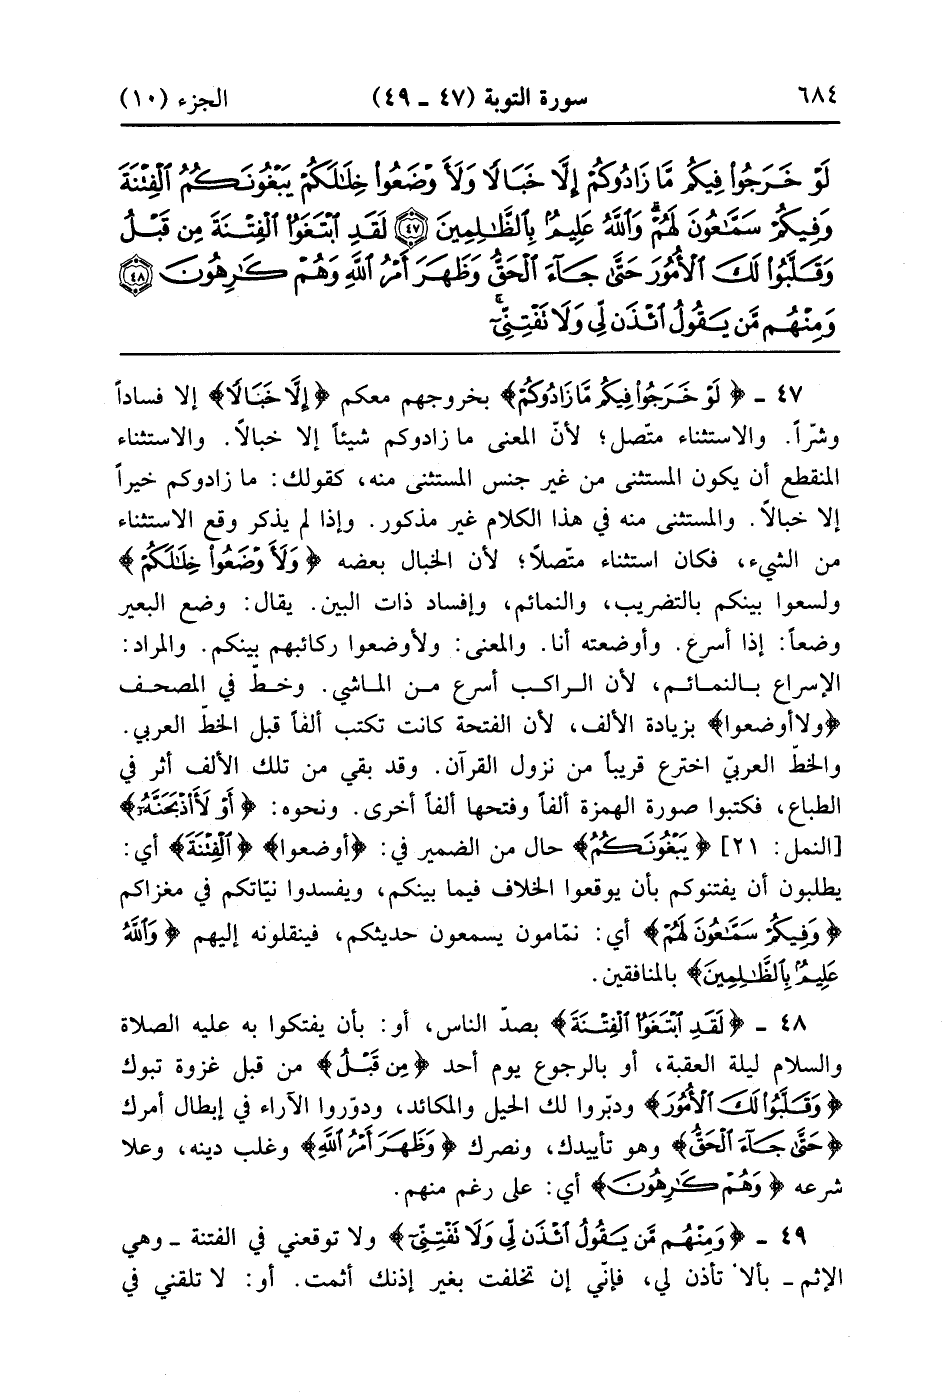 ٦٨٤ سورة التوبة (٤٧ ـ ٤٩) الجزء (١٠)
لَوْ خَرَجُوا۟ فِيكُم مَّا زَادُوكُمْ إِلَّا خَبَالًا وَلَأَوْضَعُوا۟ خِلَٰلَكُمْ يَبْغُونَكُمُ ٱلْفِتْنَةَ
وَفِيكُمْ سَمَّٰعُونَ لَهُمْ ۗ وَٱللَّهُ عَلِيمٌۢ بِٱلظَّٰلِمِينَ ٤٧ لَقَدِ ٱبْتَغَوُا۟ ٱلْفِتْنَةَ مِن قَبْلُ
وَقَلَّبُوا۟ لَكَ ٱلْأُمُورَ حَتَّىٰ جَآءَ ٱلْحَقُّ وَظَهَرَ أَمْرُ ٱللَّهِ وَهُمْ كَٰرِهُونَ ٤٨
وَمِنْهُم مَّن يَقُولُ ٱئْذَن لِّى وَلَا تَفْتِنِّىٓ ۚ
٤٧ ـ ﴿لَوْ خَرَجُوا۟ فِيكُم مَّا زَادُوكُمْ﴾ بخروجهم معكم ﴿إِلَّا خَبَالًا﴾ إلا فساداً
وشرّاً. والاستثناء متّصل؛ لأنّ المعنى ما زادوكم شيئاً إلا خبالاً. والاستثناء
المنقطع أن يكون المستثنى من غير جنس المستثنى منه، كقولك: ما زادوكم خيراً
إلا خبالاً. والمستثنى منه في هذا الكلام غير مذكور. وإذا لم يذكر وقع الاستثناء
من الشيء، فكان استثناء متّصلاً؛ لأن الخبال بعضه ﴿وَلَأَوْضَعُوا۟ خِلَٰلَكُمْ﴾
ولسعوا بينكم بالتضريب، والنمائم، وإفساد ذات البين. يقال: وضع البعير
وضعاً: إذا أسرع. وأوضعته أنا. والمعنى: ولأوضعوا ركائبهم بينكم. والمراد:
الإسراع بالنمائم، لأن الراكب أسرع من الماشي. وخطّ في المصحف
﴿ولاأوضعوا﴾ بزيادة الألف، لأن الفتحة كانت تكتب ألفاً قبل الخطّ العربي.
والخطّ العربيّ اخترع قريباً من نزول القرآن. وقد بقي من تلك الألف أثر في
الطباع، فكتبوا صورة الهمزة ألفاً وفتحها ألفاً أخرى. ونحوه: ﴿أَوْ لَأَا۟ذْبَحَنَّهُۥٓ﴾
[النمل: ٢١] ﴿يَبْغُونَكُمُ﴾ حال من الضمير في: ﴿أوضعوا﴾ ﴿ٱلْفِتْنَةَ﴾ أي:
يطلبون أن يفتنوكم بأن يوقعوا الخلاف فيما بينكم، ويفسدوا نيّاتكم في مغزاكم
﴿وَفِيكُمْ سَمَّٰعُونَ لَهُمْ﴾ أي: نمّامون يسمعون حديثكم، فينقلونه إليهم ﴿وَٱللَّهُ
عَلِيمٌۢ بِٱلظَّٰلِمِينَ﴾ بالمنافقين.
٤٨ ـ ﴿لَقَدِ ٱبْتَغَوُا۟ ٱلْفِتْنَةَ﴾ بصدّ الناس، أو: بأن يفتكوا به عليه الصلاة
والسلام ليلة العقبة، أو بالرجوع يوم أحد ﴿مِن قَبْلُ﴾ من قبل غزوة تبوك
﴿وَقَلَّبُوا۟ لَكَ ٱلْأُمُورَ﴾ ودبّروا لك الحيل والمكائد، ودوّروا الآراء في إبطال أمرك
﴿حَتَّىٰ جَآءَ ٱلْحَقُّ﴾ وهو تأييدك، ونصرك ﴿وَظَهَرَ أَمْرُ ٱللَّهِ﴾ وغلب دينه، وعلا
شرعه ﴿وَهُمْ كَٰرِهُونَ﴾ أي: على رغم منهم.
٤٩ ـ ﴿وَمِنْهُم مَّن يَقُولُ ٱئْذَن لِّى وَلَا تَفْتِنِّىٓ﴾ ولا توقعني في الفتنة ـ وهي
الإثم ـ بألا تأذن لي، فإنّي إن تخلفت بغير إذنك أثمت. أو: لا تلقني في